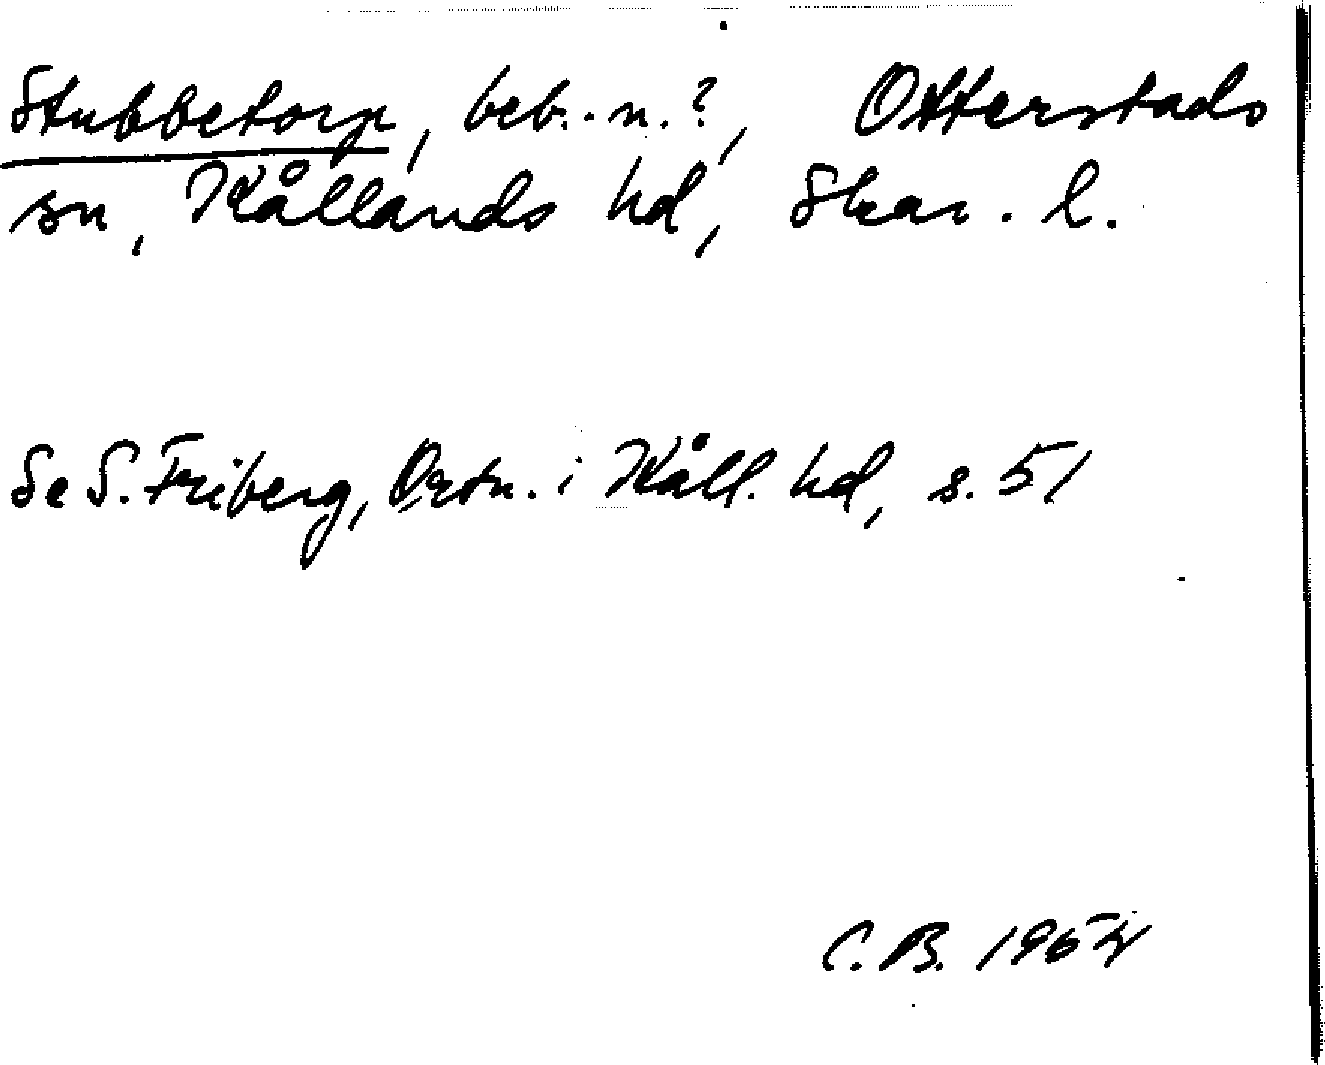 Stubbetorp, beb.-n.?, Otterstads
sn, Kållands hd, Skar. l.
Se S. Friberg, Ortn. i Kåll. hd, s. 51
C.B. 1964